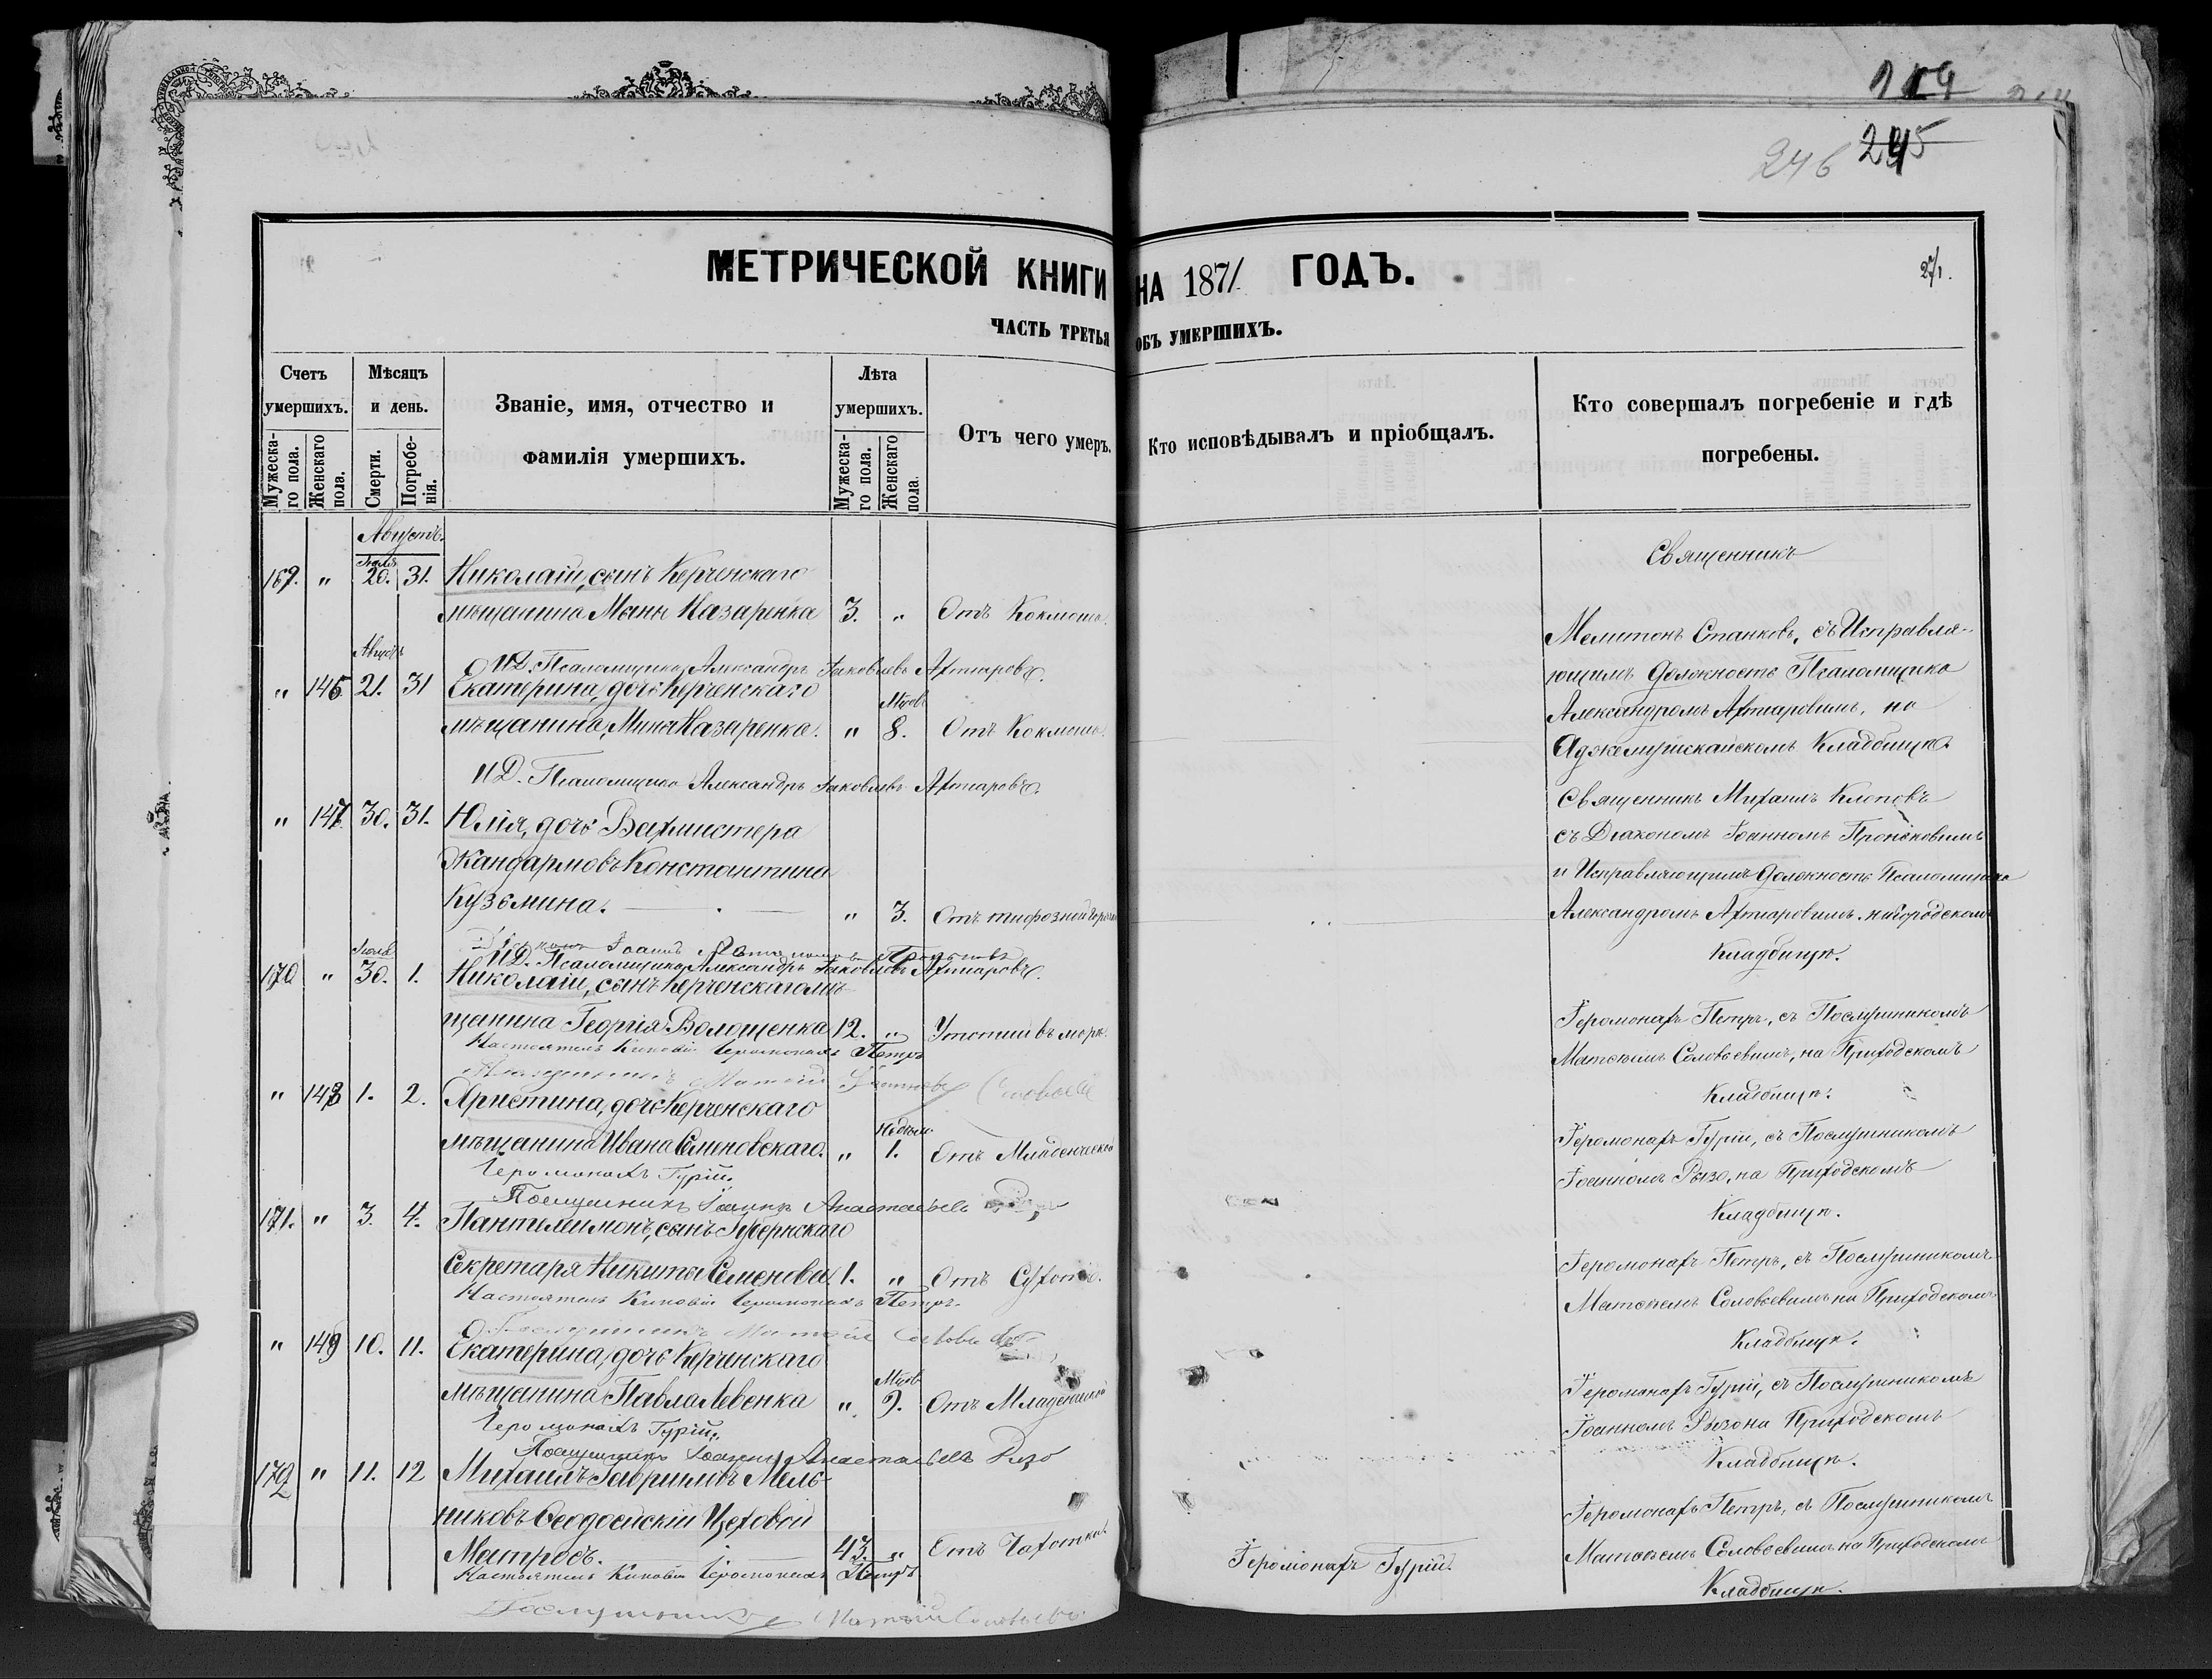 219
246 245
МЕТРИЧЕСКОЙ КНИГИ НА 1871 ГОДЪ.
271.
ЧАСТЬ ТРЕТЬЯ ОБЪ УМЕРШИХЪ.
Счетъ умершихъ.
Мужеска-го пола.
Женскаго пола.
Мѣсяцъ и день.
Смерти.
Погребе-нія.
Званіе, имя, отчество и фамилія умершихъ.
Лѣта умершихъ.
Мужеска-го пола.
Женскаго пола.
Отъ чего умеръ.
Кто исповѣдывалъ и пріобщалъ.
Кто совершалъ погребеніе и гдѣ погребены.
Августъ.
Іюля
169. " 20. 31. Николай, сынъ Керченскаго
мѣщанина Мины Назаренка 3. " Отъ Коклюша.
Священникъ
Мелитонъ Станковъ, съ Исправля-
ющимъ Должность Псаломщика
Александромъ Ахтыаровымъ, на
Аджемушкайскомъ Кладбищѣ.
И.Д. Псаломщика Александръ Іаковлевъ Ахтіаровъ.
" 146 21. 31 Екатерина, дочь Керченскаго
Мѣсяц.
мѣщанина, Мины Назаренка. " 8. Отъ Коклюша.
И.Д. Псаломщика Александръ Іаковлевъ Ахтіаровъ.
" 147. 30. 31. Юлія, дочь Вахмистера
Жандармовъ Константина
Кузьмина. " 3. Отъ тифозной горяч
Священникъ Михаилъ Клоповъ
съ Діакономъ Іоанномъ
и Исправляющимъ Должность Псаломщика
Александромъ Ахтіаровымъ на городскомъ
Кладбищѣ.
И.Д. Псаломщика Александръ Іаковлевъ Ахтіаровъ.
Іюля
170 " 30. 1. Николай, сынъ Керченскаго мѣ-
щанина Георгія Волощенка 12. " Утопшій въ морѣ.
Настоятель Киновіи Іеромонахъ Петръ
Іеромонахъ Петръ, съ Послушникомъ
Матѳеемъ Соловьевымъ, на Приходскомъ
Кладбищѣ.
" 148 1. 2. Христина, дочь Керченскаго
Недѣли.
мѣщанина Ивана Семеновскаго. " 1. Отъ Младенческой
Іеромонахъ Гурій.
Послушникъ Іоаннъ Анастасьевъ
Іеромонахъ Гурій, съ Послушникомъ
Іоанномъ Рызо, на Приходскомъ
Кладбищѣ.
171. " 3. 4. Пантелимонъ, сынъ Губернскаго
Секретаря Никиты Семенова 1. " Отъ Сухотки.
Настоятель Киновіи Іеромонахъ Петръ.
Послушникъ Матѳей Соловьевъ
Іеромонахъ Петръ, съ Послушникомъ
Матѳеемъ Соловьевымъ на Приходскомъ
Кладбищѣ.
" 149 10. 11. Екатерина, дочь Керченскаго
Мѣсяц.
мѣщанина Павла Левенка " 9. Отъ Младенческой
Іеромонахъ Гурій.
Послушникъ Іоаннъ Анастасьевъ Ризо
Іеромонахъ Гурій, съ Послушникомъ
Іоанномъ Рызо на Приходскомъ
Кладбищѣ.
172 " 11. 12 Михаилъ Гавриловъ Мель-
никовъ Ѳеодосійскій Цеховой
Матросъ. 43. " Отъ Чахотки.
Настоятель Киновіи Іеромонахъ Петръ
Послушникъ Матѳей Соловьевъ.
Іеромонахъ Гурій.
Іеромонахъ Петръ, съ Послушникомъ
Матѳеемъ Соловьевымъ на Приходскомъ
Кладбищѣ.